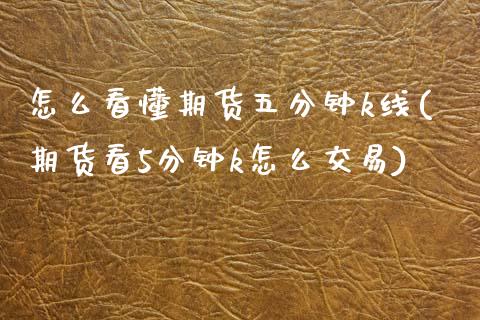 怎么看懂期货五分钟k线(
期货看5分钟k怎么交易)